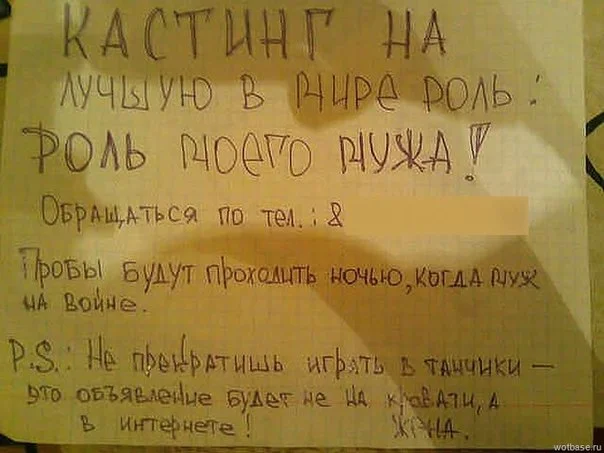 КАСТИНГ НА
ЛУЧШУЮ В МИРЕ РОЛЬ :
РОЛЬ МОЕГО МУЖА!
ОБРАЩАТЬСЯ ПО ТЕЛ.: 8
ПРОБЫ БУДУТ ПРОХОДИТЬ НОЧЬЮ, КОГДА МУЖ
НА ВОЙНЕ.
P.S.: НЕ ПРЕКРАТИШЬ ИГРАТЬ В ТАНЧИКИ —
ЭТО ОБЪЯВЛЕНИЕ БУДЕТ НЕ НА КРОВАТИ, А
В ИНТЕРНЕТЕ! ЖЕНА.
wotbase.ru